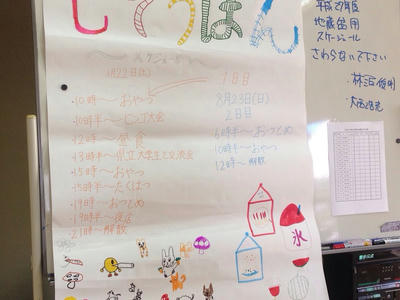 じぞうぼん
スケジュール
8月22日(土)
1日目
・10時〜おやつ
・10時半〜ビンゴ大会
・12時〜昼食
・13時〜県立大学生と交流会
・15時〜おやつ
・15時〜たくはつ
・19時〜おつとめ
・19時半〜夜店
・21時〜解散
8月23日(日)
2日目
9時半〜おつとめ
10時〜おやつ
12時〜解散
氷
平成27年度
地蔵盆用
スケジュール
さわらないで下さい